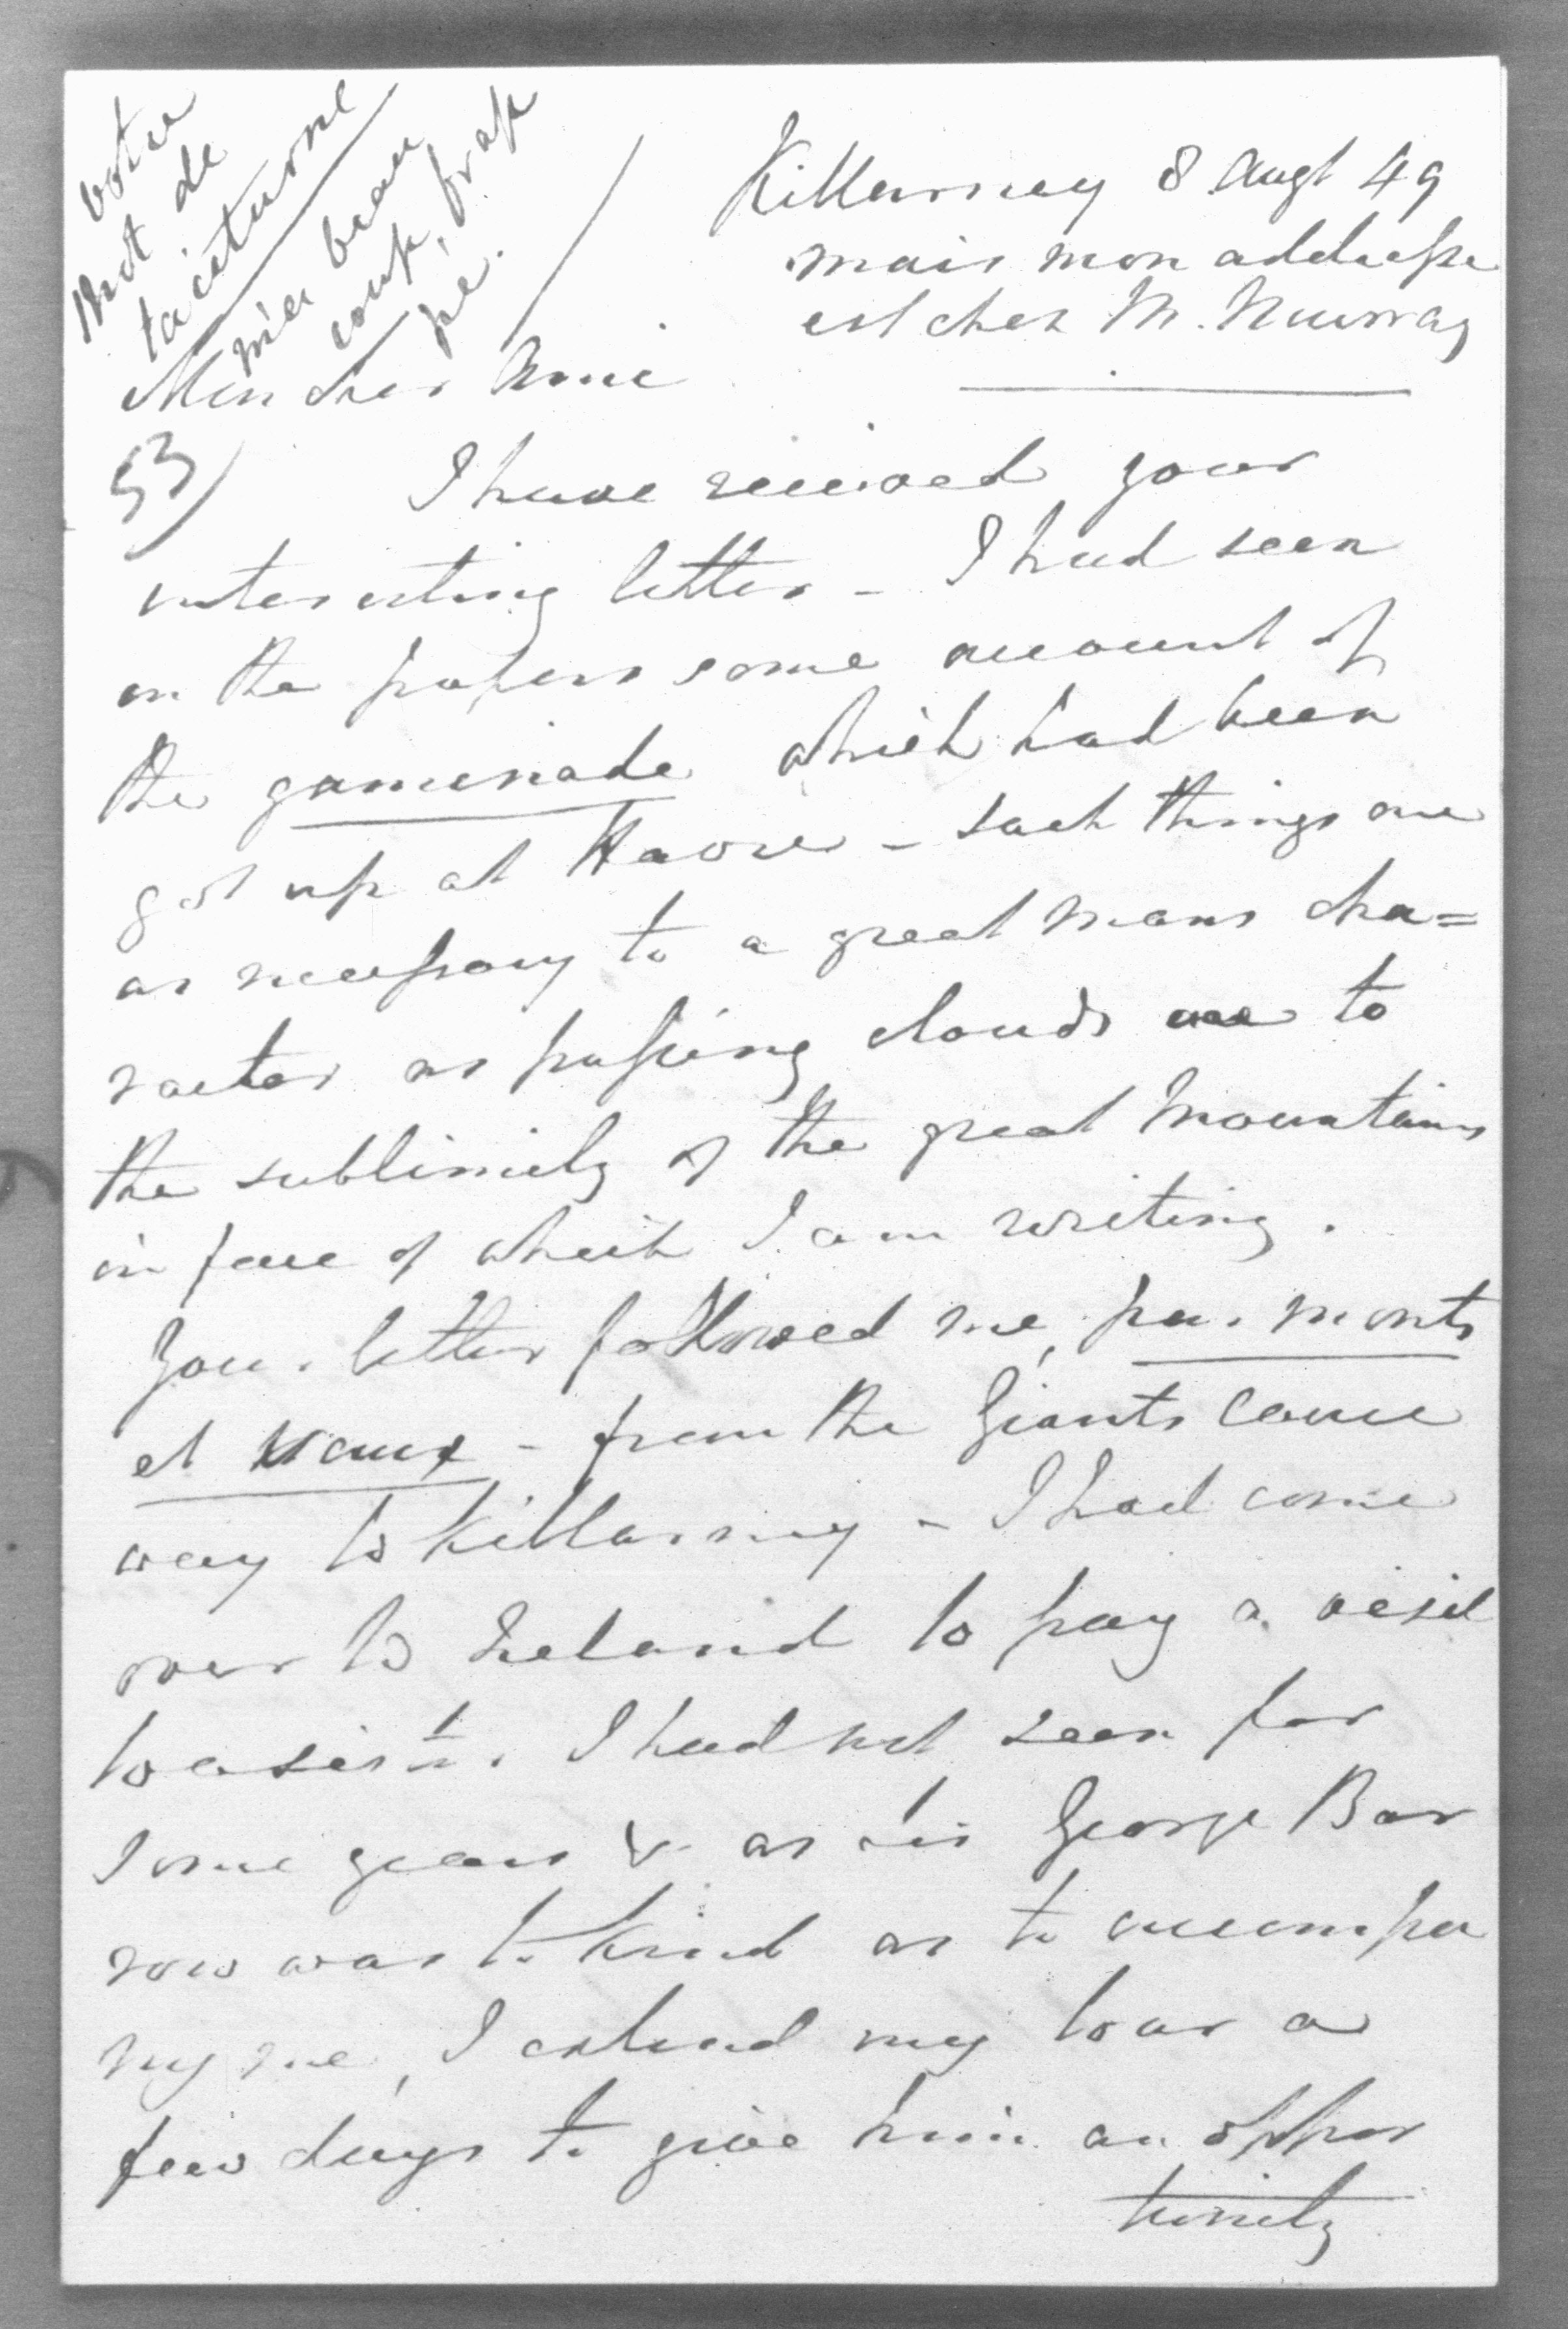 votre
mot de
taciturne
m'a beau
coup frap
pé.
Killarney 8 Augt 49
mais mon addresse
est chez M. Murray
Mon cher Ami
53
I have received your
interesting letter - I had seen
in the papers some account of
the gaminade which had been
got up at Havre - such things are
as necessary to a great mans cha=
racter as passing clouds are to
the sublimity of the great mountains
in face of which I am writing.
Your letter followed me, par monts
et vaux - from the Giants Cause
way to Killarney - I had come
over to Ireland to pay a visit
to a sister I had not seen for
some years & as Sir George Bar
row was so kind as to accompa
ny me, I extend my tour a
few days to give him an oppor
tunity